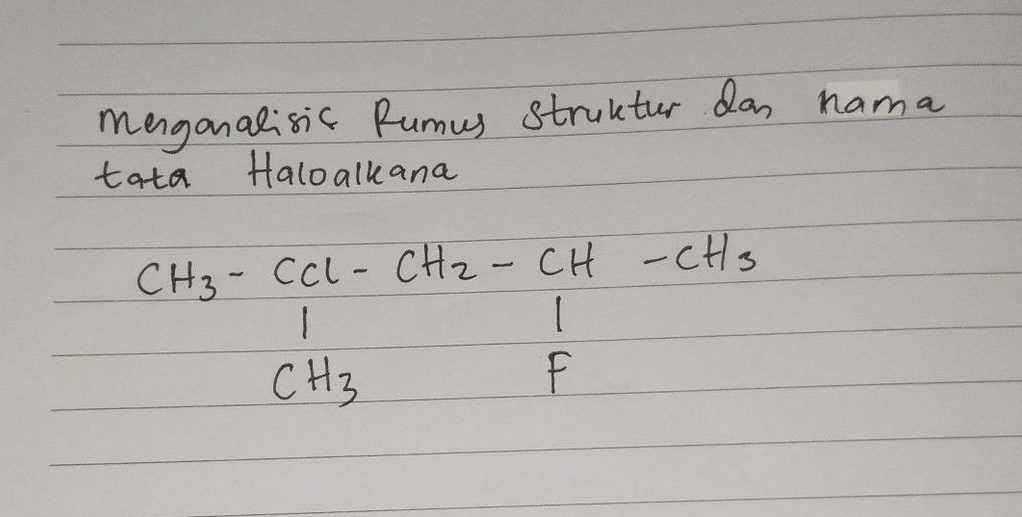 Menganalisis Rumus Struktur dan nama
tata Haloalkana
CH3 - CCl - CH2 - CH - CH3
| |
CH3 F